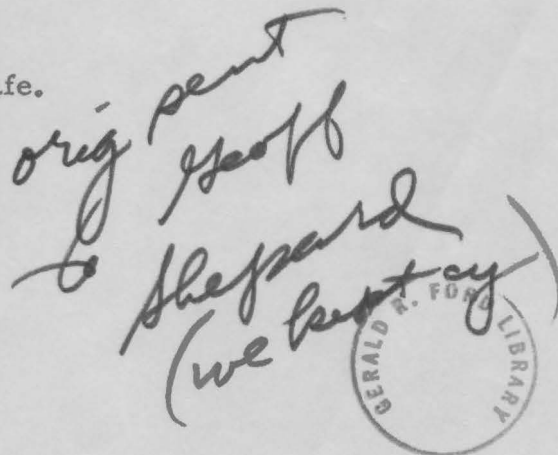 ife.
orig sent
Geoff
to Shepard
(we kept cy)
GERALD R. FORD LIBRARY